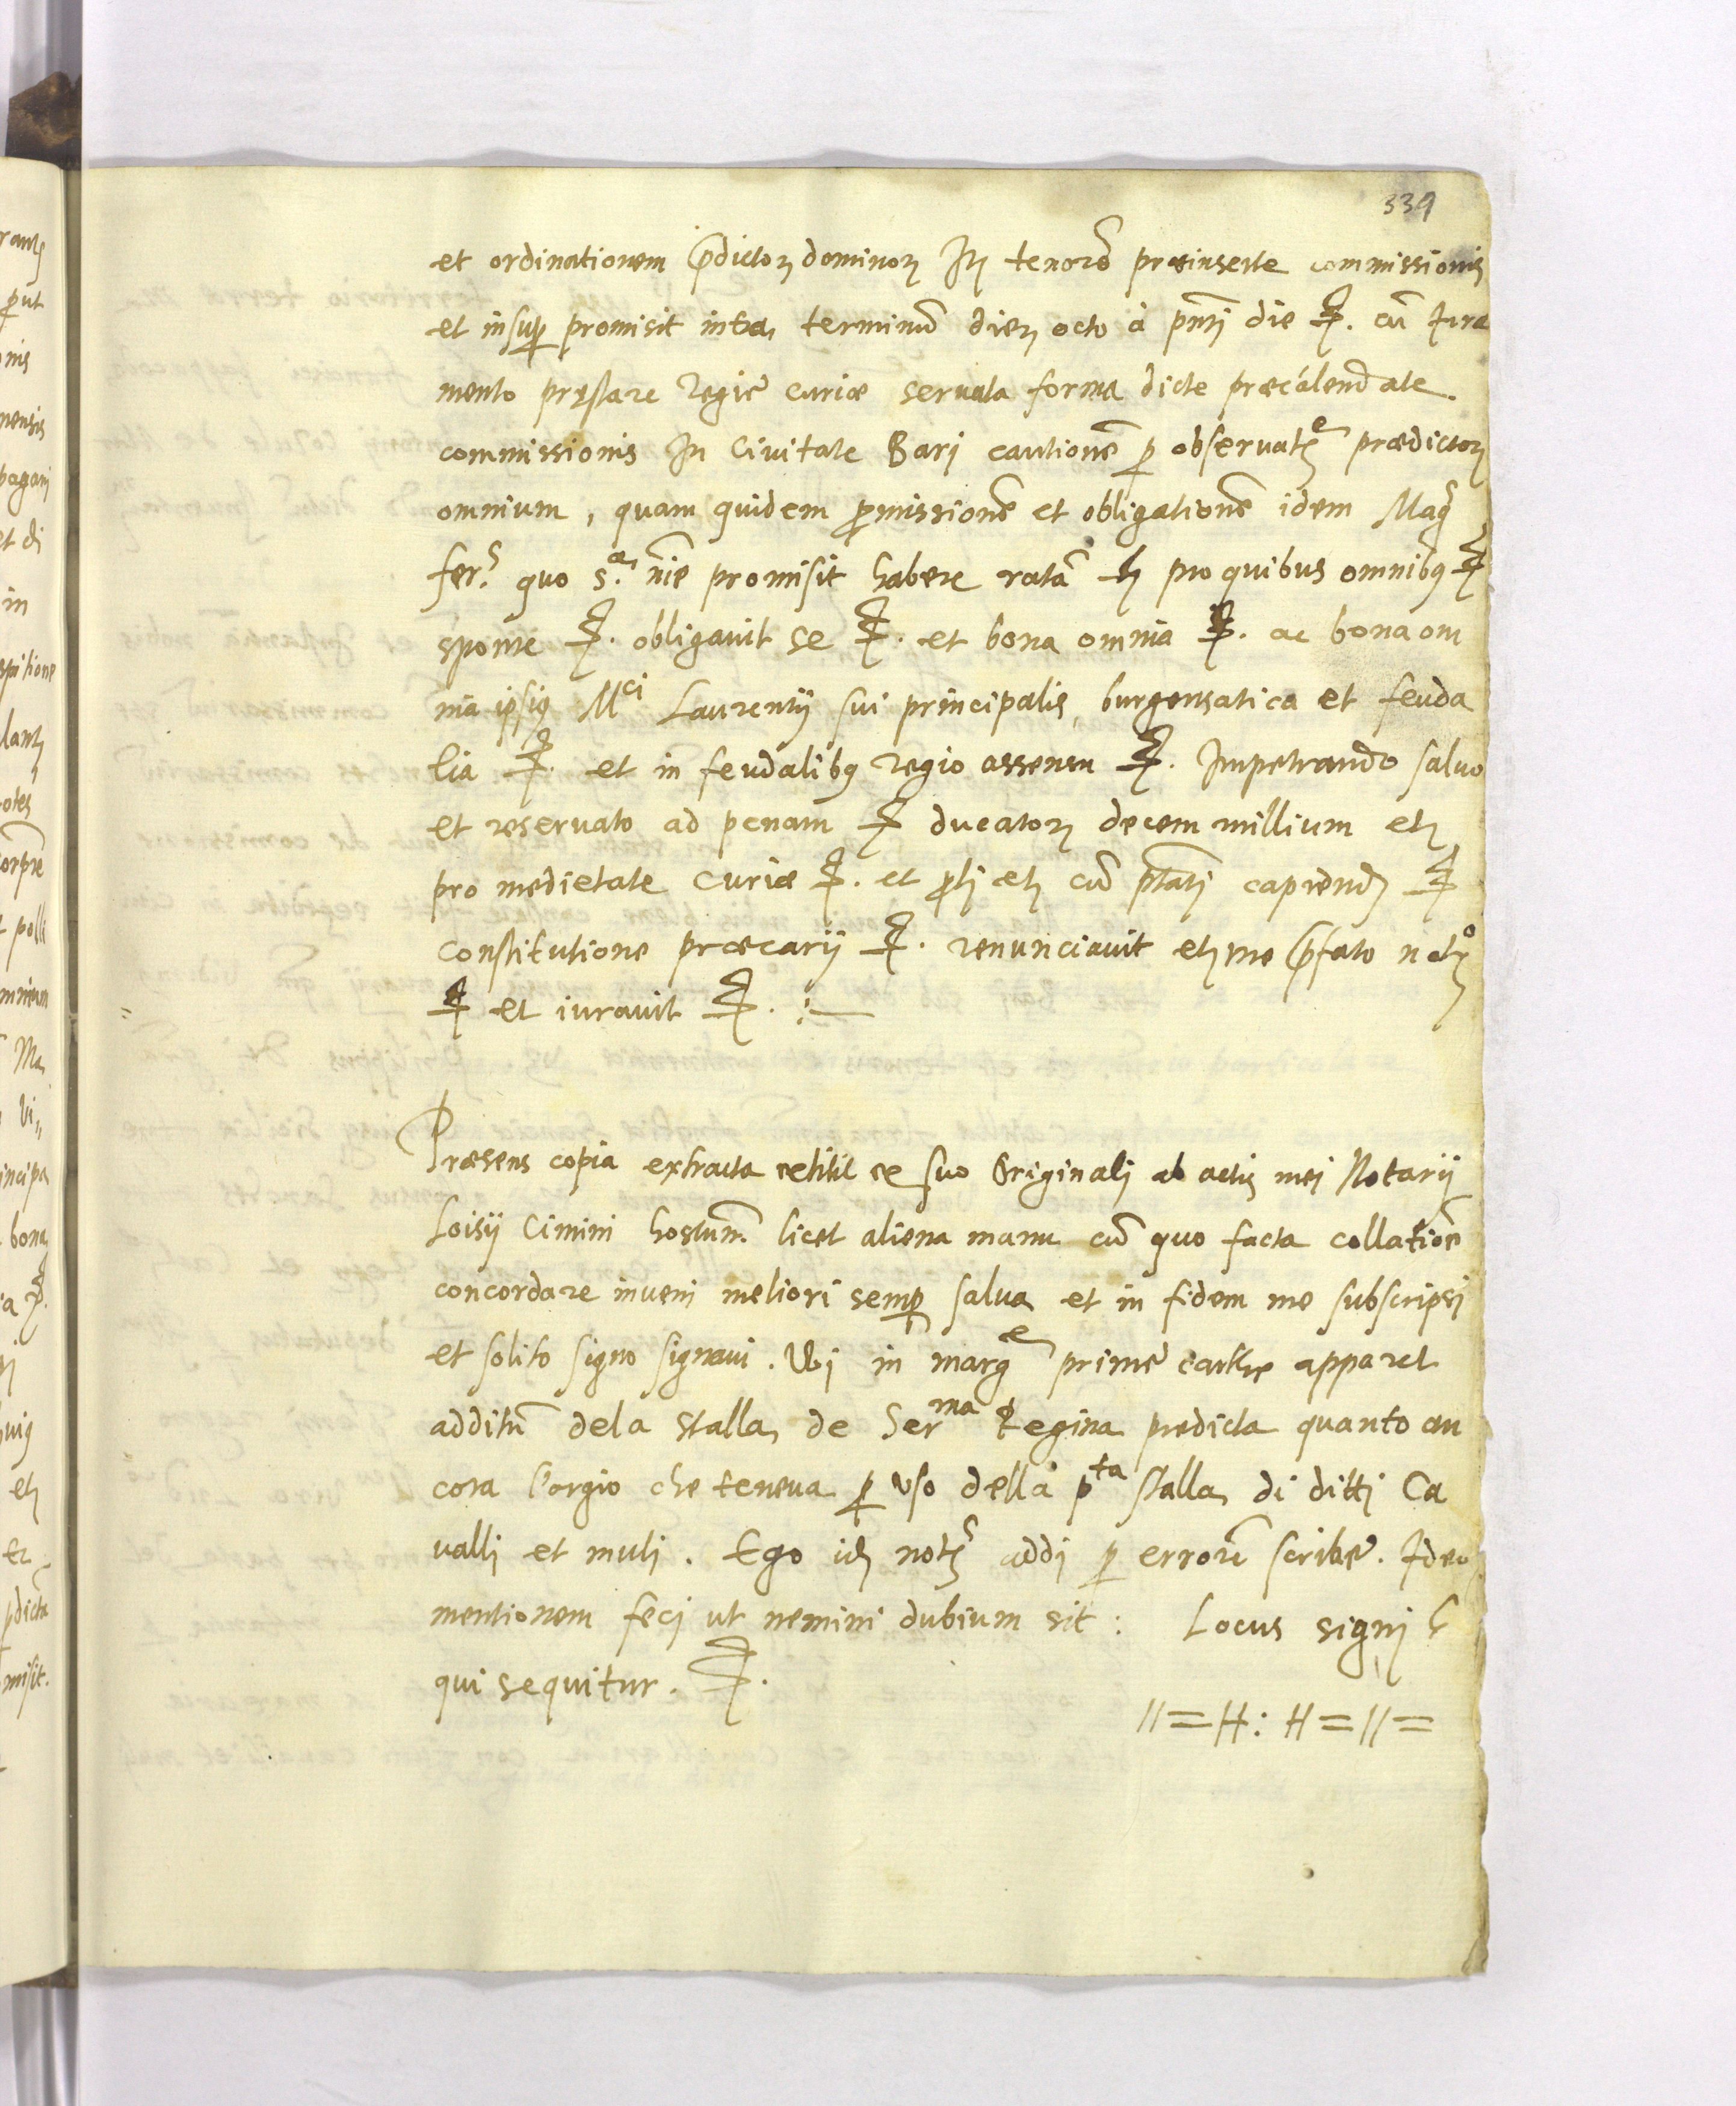 339
et ordinationem p̃dictoꝝ dominoꝝ Iꝫ tenorẽ preinserte commissionis
et insuꝑ promisit infra terminũ dieꝝ octo à pñti die &. cũ Iura
mento pręstare Regiẽ curiæ seruata forma dicte præcalendate
commissionis In Ciuitate Barj cautionẽ ꝑ obseruatꝫe prædictoꝝ
omnium, quam quidem ꝓmissionẽ et obligationẽ idem Mag̃
fer.s quo s.a nĩe promisit habere ratã & pro quibus omnibꝰ &
sponte &. obligauit se &. et bona omnia &. ac bona om
nia ipsiꝰ Mci Laurentij sui principalis, burgensatica et feuda
lia &. et in feudalibꝰ regio assensu &. Impetrando saluo
et reseruato ad penam & ducatoꝝ decem millium etꝫ
pro medietate Curiæ &. et ꝑti etꝫ cũ ptãti capiendꝫ &
Constitutione præcarij &. renunciauit etꝫ me p̃fato notꝫo
& et iurauit &. :—
Præsens copia extracta extitit ex suo Originalj ab actis mei Notarij
Loisij Cimini hostunẽ licet aliena manu cũ quo facta collatiõe
concordare inuenj meliori semꝑ salua et in fidem me subscripsj
et solito signo signaui. Vbj in margꝫe primẽ carthe apparet
additũ dela stalla, de Serma Regina predicta quanto an
cora l'orgio che teneua ꝑ uso della pta stalla, di dittj Ca
ualli et mulj. Ego idꝫ notꝫs addj ꝑ errorẽ scribẽ. Ideo
mentionem fecj ut nemini dubium sit: Locus signj
qui sequitur. &.
//=H: H=//=